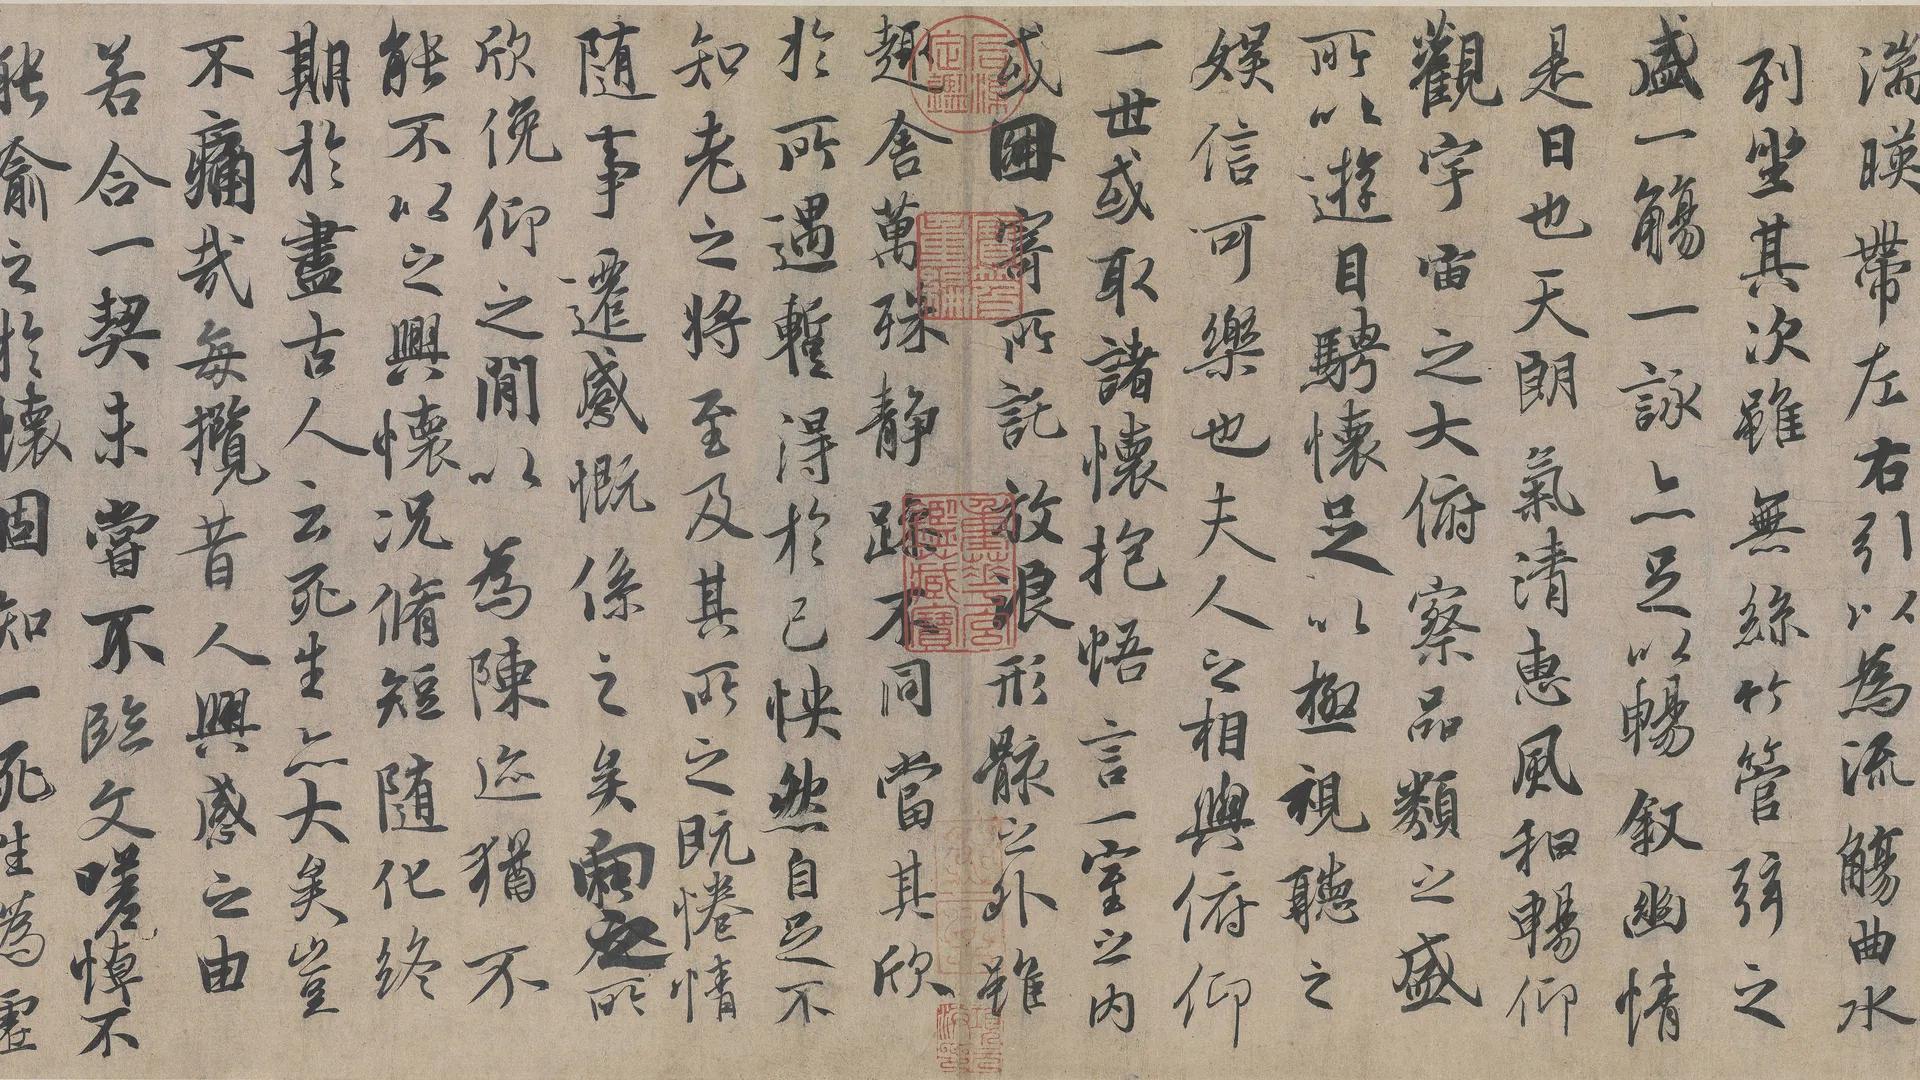 湍暎帶左右引以為流觴曲水
列坐其次雖無絲竹管弦之
盛一觴一詠亦足以暢敘幽情
是日也天朗氣清惠風和暢仰
觀宇宙之大俯察品類之盛
所以遊目騁懷足以極視聽之
娛信可樂也夫人之相與俯仰
一世或取諸懷抱悟言一室之內
或因寄所託放浪形骸之外雖
趣舍萬殊静躁不同當其欣
於所遇暫得於己怏然自足不
知老之將至及其所之既惓情
随事遷感慨係之矣向之所
欣俛仰之閒以為陳迹猶不
能不以之興懷況脩短随化終
期於盡古人云死生亦大矣豈
不痛哉每攬昔人興感之由
若合一契未嘗不臨文嗟悼不
能喻之於懷固知一死生為虛